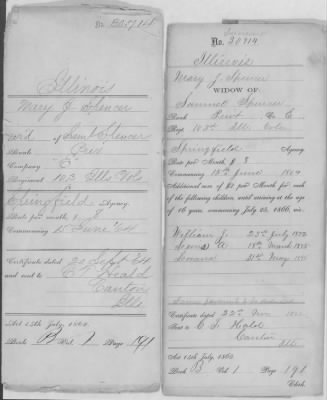 No.
Illinois
Mary J. Spencer
wid of Saml Spencer
Rank Pvt
Company "C"
Regiment 103 Ills Vols
Springfield Agency
Rate per month, $ 8
Commencing 15 June '64
Certificate dated 20 Sept 64
and sent to
Canton
Ills
Act 14th July, 1862.
Book B Vol. 1 Page 191
No. 30714
Illinois
Mary J. Spencer
WIDOW OF
Samuel Spencer
Rank Pvt Co. C
Reg't 103d Ills Vols
Springfield Agency
Rate per Month, $ 8
Commencing 15th June 1864
Additional sum of $2 per Month for each
of the following children, until arriving at the age
of 16 years, commencing July 25, 1866, viz:
William J. 23d July 1852
18th March
31st May
Certificate dated 22d
Sent to
Canton
Ills
Act 14th July, 1862.
Book B Vol. 1 Page 191
Clerk.